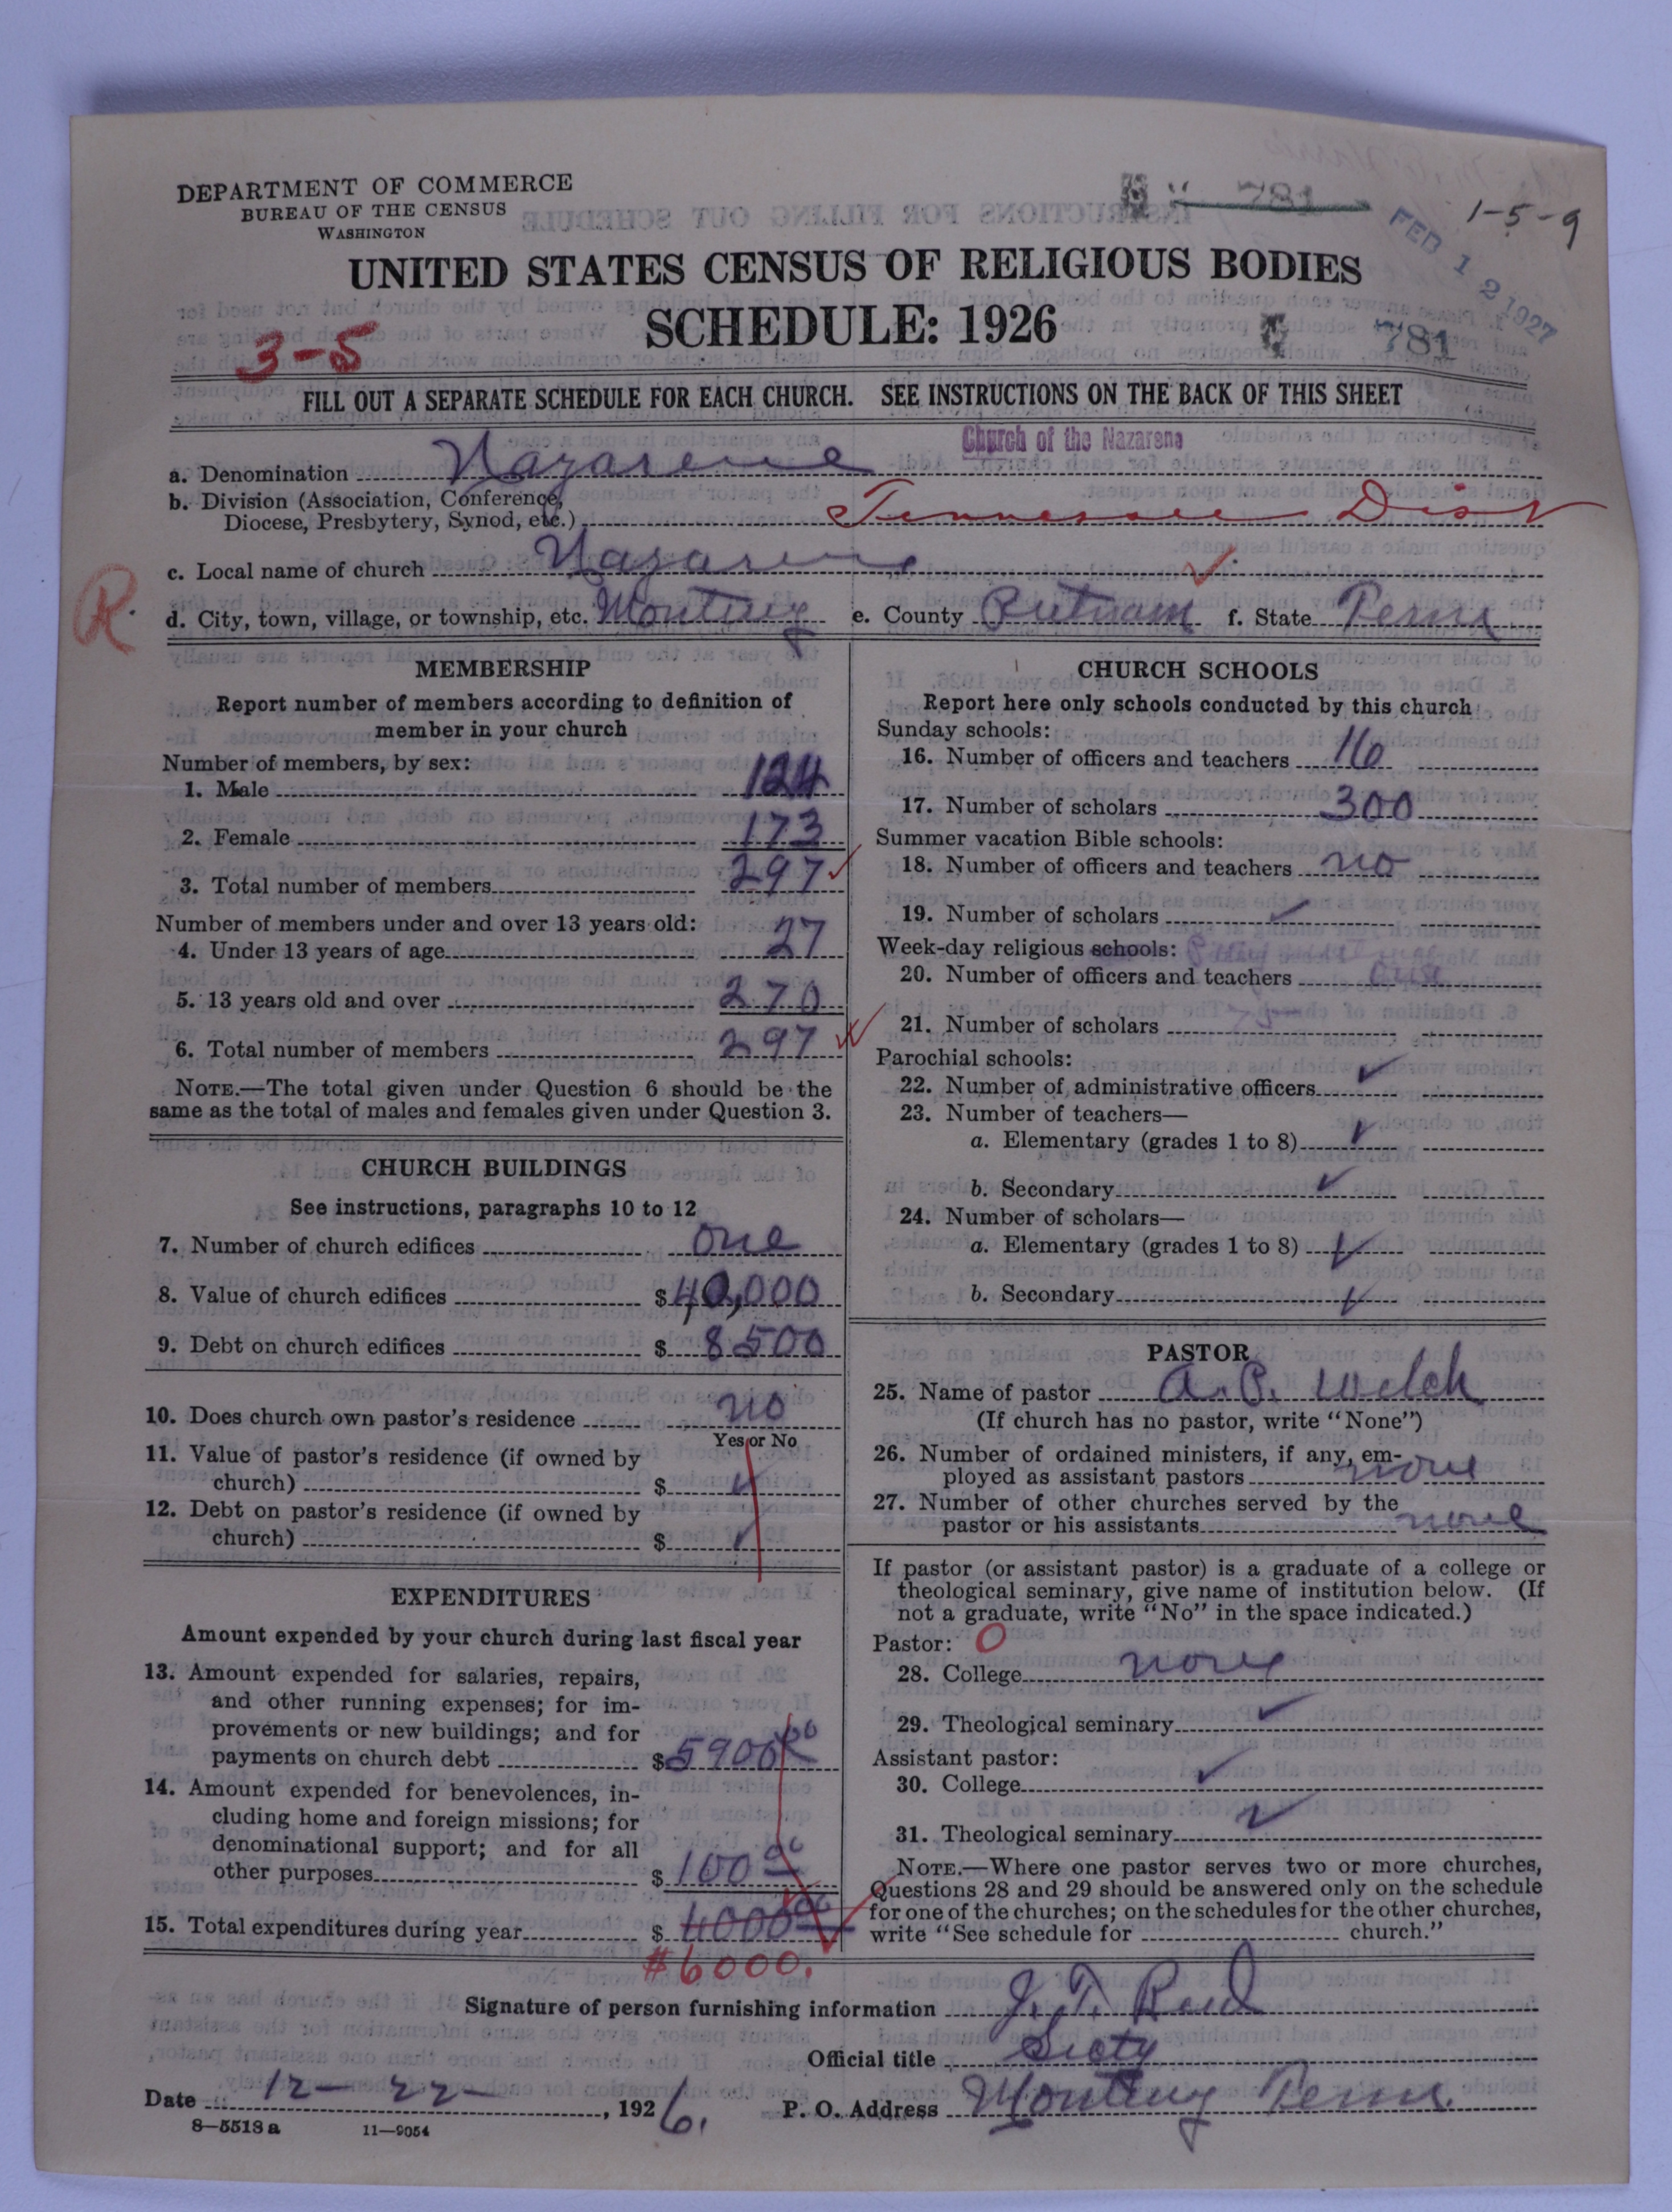 DEPARTMENT OF COMMERCE
BUREAU OF THE CENSUS
WASHINGTON
781
1-5-9
FEB 12 1927
UNITED STATES CENSUS OF RELIGIOUS BODIES
SCHEDULE: 1926
781
3-5
FILL OUT A SEPARATE SCHEDULE FOR EACH CHURCH. SEE INSTRUCTIONS ON THE BACK OF THIS SHEET
Church of the Nazarene
a. Denomination Nazarene
b. Division (Association, Conference,
Diocese, Presbytery, Synod, etc.) Tennessee Dist
c. Local name of church Nazarene
R.
d. City, town, village, or township, etc. Monterey e. County Putnam f. State Tenn
MEMBERSHIP
Report number of members according to definition of
member in your church
Number of members, by sex:
1. Male 124
2. Female 173
3. Total number of members 297
Number of members under and over 13 years old:
4. Under 13 years of age 27
5. 13 years old and over 270
6. Total number of members 297
NOTE.—The total given under Question 6 should be the
same as the total of males and females given under Question 3.
CHURCH BUILDINGS
See instructions, paragraphs 10 to 12
7. Number of church edifices one
8. Value of church edifices $40,000
9. Debt on church edifices $8500
10. Does church own pastor's residence no
Yes or No
11. Value of pastor's residence (if owned by
church) $
12. Debt on pastor's residence (if owned by
church) $
EXPENDITURES
Amount expended by your church during last fiscal year
13. Amount expended for salaries, repairs,
and other running expenses; for im-
provements or new buildings; and for
payments on church debt $5900 00
14. Amount expended for benevolences, in-
cluding home and foreign missions; for
denominational support; and for all
other purposes $100 00
15. Total expenditures during year $4000 00
#6000.
CHURCH SCHOOLS
Report here only schools conducted by this church
Sunday schools:
16. Number of officers and teachers 16
17. Number of scholars 300
Summer vacation Bible schools:
18. Number of officers and teachers no
19. Number of scholars
Week-day religious schools:
20. Number of officers and teachers one
21. Number of scholars 75
Parochial schools:
22. Number of administrative officers
23. Number of teachers—
a. Elementary (grades 1 to 8)
b. Secondary
24. Number of scholars—
a. Elementary (grades 1 to 8)
b. Secondary
PASTOR
25. Name of pastor A. P. Welch
(If church has no pastor, write "None")
26. Number of ordained ministers, if any, em-
ployed as assistant pastors none
27. Number of other churches served by the
pastor or his assistants none
If pastor (or assistant pastor) is a graduate of a college or
theological seminary, give name of institution below. (If
not a graduate, write "No" in the space indicated.)
Pastor: O
28. College none
29. Theological seminary
Assistant pastor:
30. College
31. Theological seminary
NOTE.—Where one pastor serves two or more churches,
Questions 28 and 29 should be answered only on the schedule
for one of the churches; on the schedules for the other churches,
write "See schedule for church."
Signature of person furnishing information J. T. Reed
Official title Secty
Date 12-22-, 1926. P. O. Address Monterey Tenn.
8—5518a 11—9054